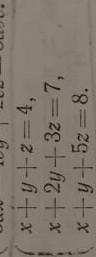 x+y+z=4,
x+2y+3z=7,
x+y+5z=8.